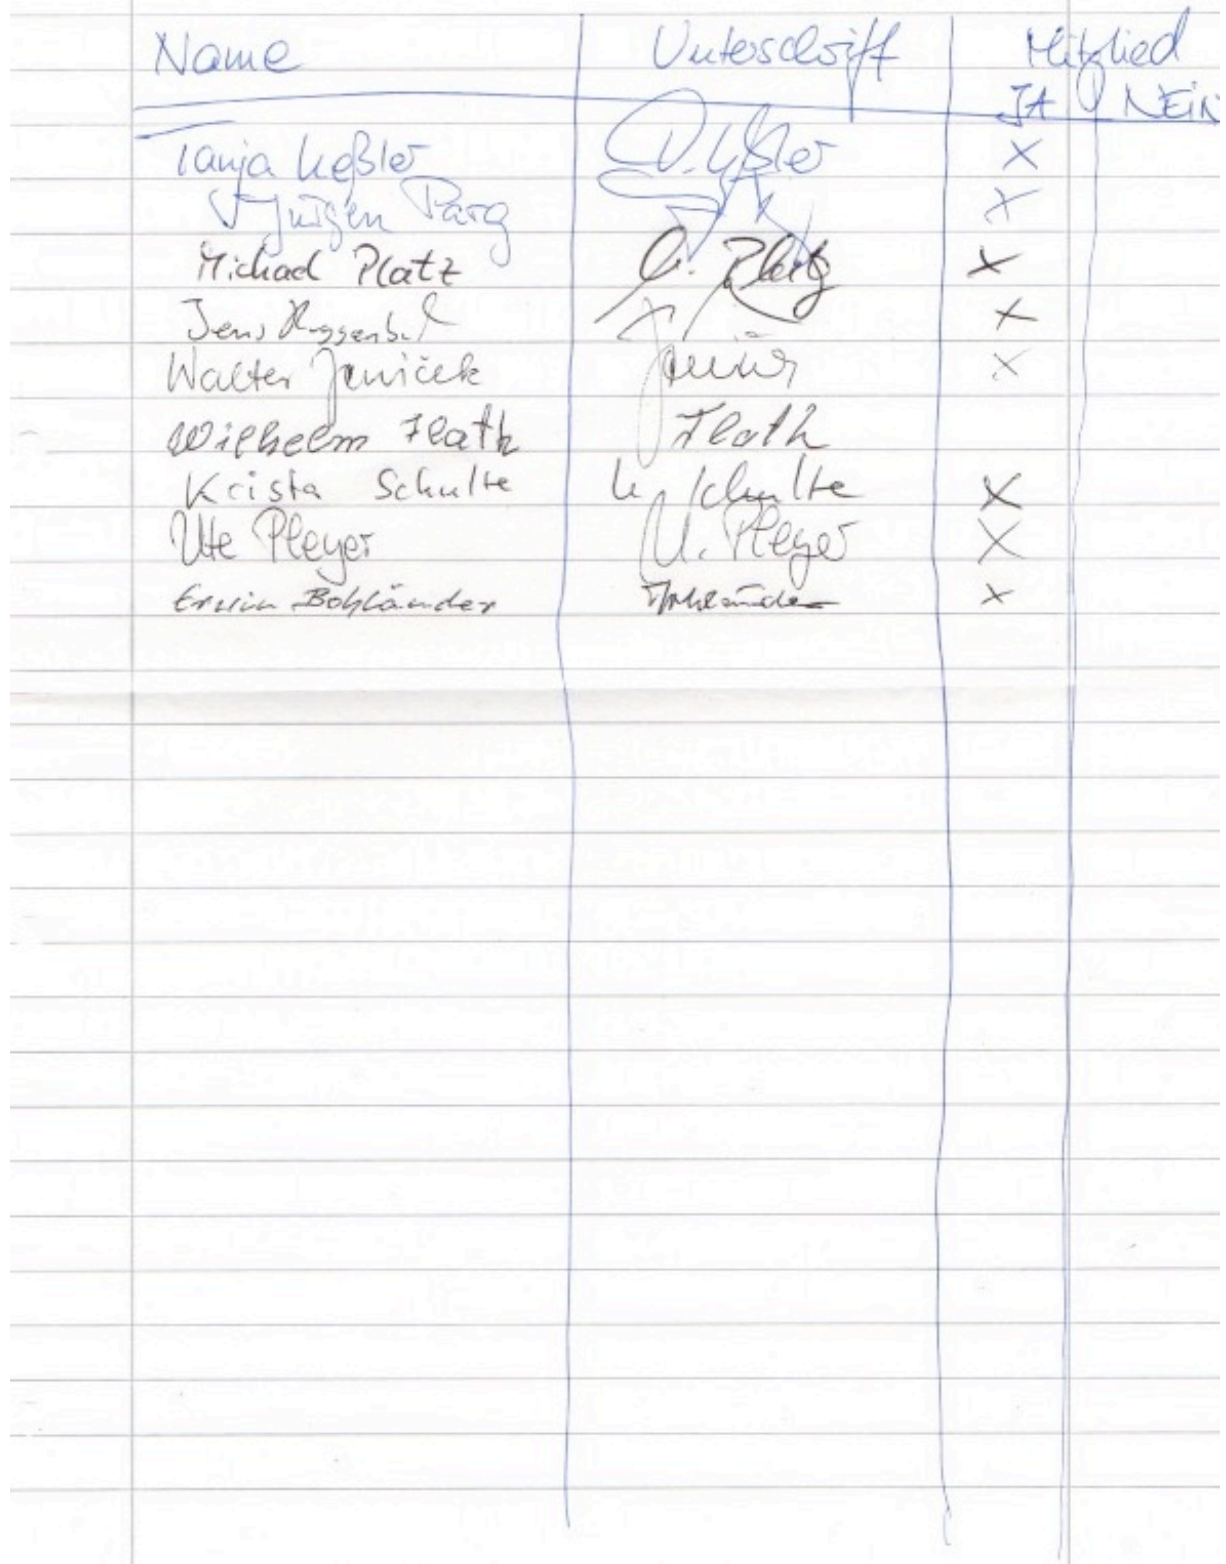 Name Unterschrift Mitglied
JA NEIN
Tanja Keßler T. Keßler X
Jürgen Parg X
Michael Platz M. Platz X
Jens X
Walter Janiček X
Wilhelm Flath Flath
Krista Schulte K. Schulte X
Ute Pleyer U. Pleyer X
Erwin Bohländer Bohländer X